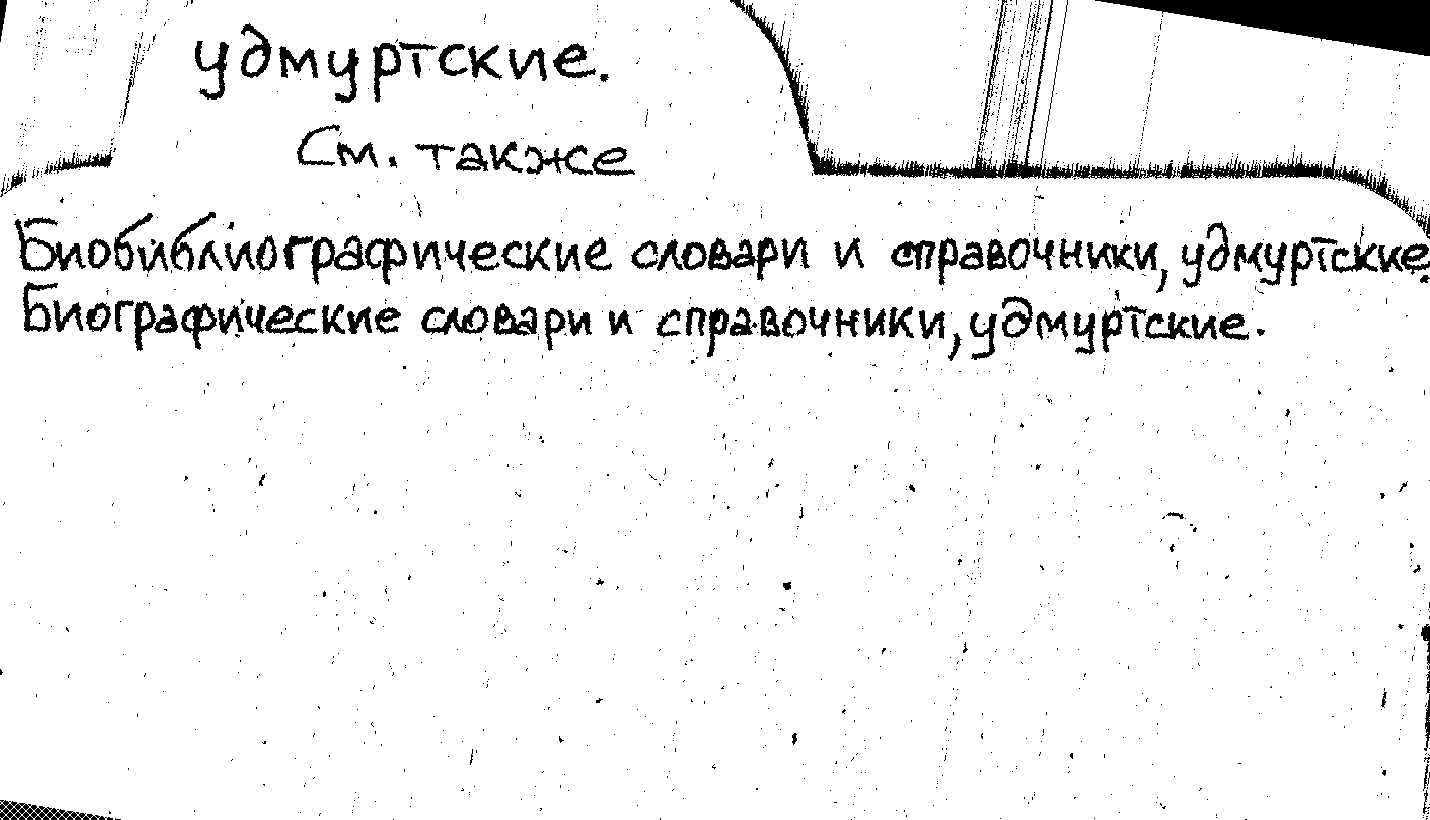 удмуртские.
См. также
Биобиблиографические словари и справочники, удмуртские.
Биографические словари и справочники, удмуртские.